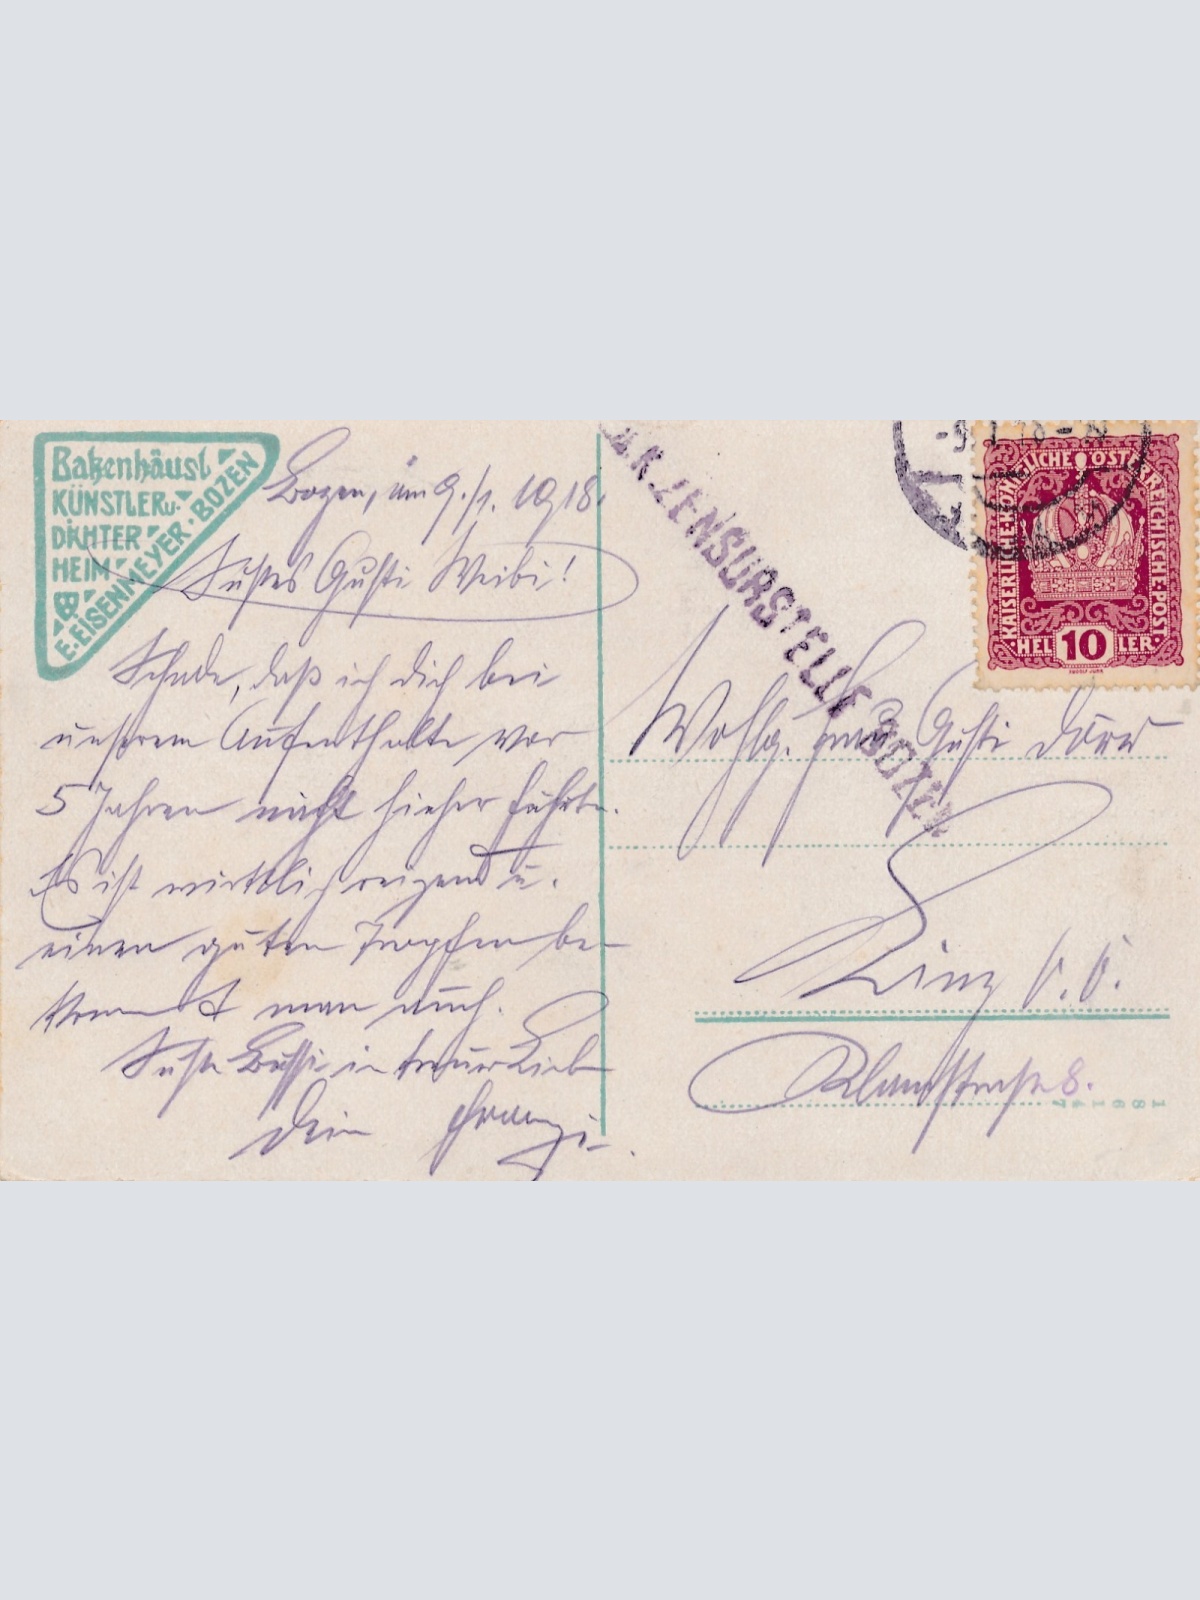 Batzenhäusl
KÜNSTLER u.
DICHTER
HEIM
E. EISENMEYER · BOZEN
Bozen, am 9./1. 1918.
Süstes Gusti Weibi!
Schade, daß ich dich bei
unserem Aufenthalte vor
5 Jahren nicht hieher führte.
Es ist wirklich reizend u.
einen guten Tropfen be-
kommt man auch.
Süße Bussi in treuer Liebe
Dein Franzi.
K.u.K. ZENSURSTELLE BOZEN
-9. 1 18-
KAISERLICHE KÖNIGLICHE ÖSTERREICHISCHE POST
HELLER
10
RUDOLF JUNK
Wohlg. Frau Gusti Dörr
Linz
8.
186147